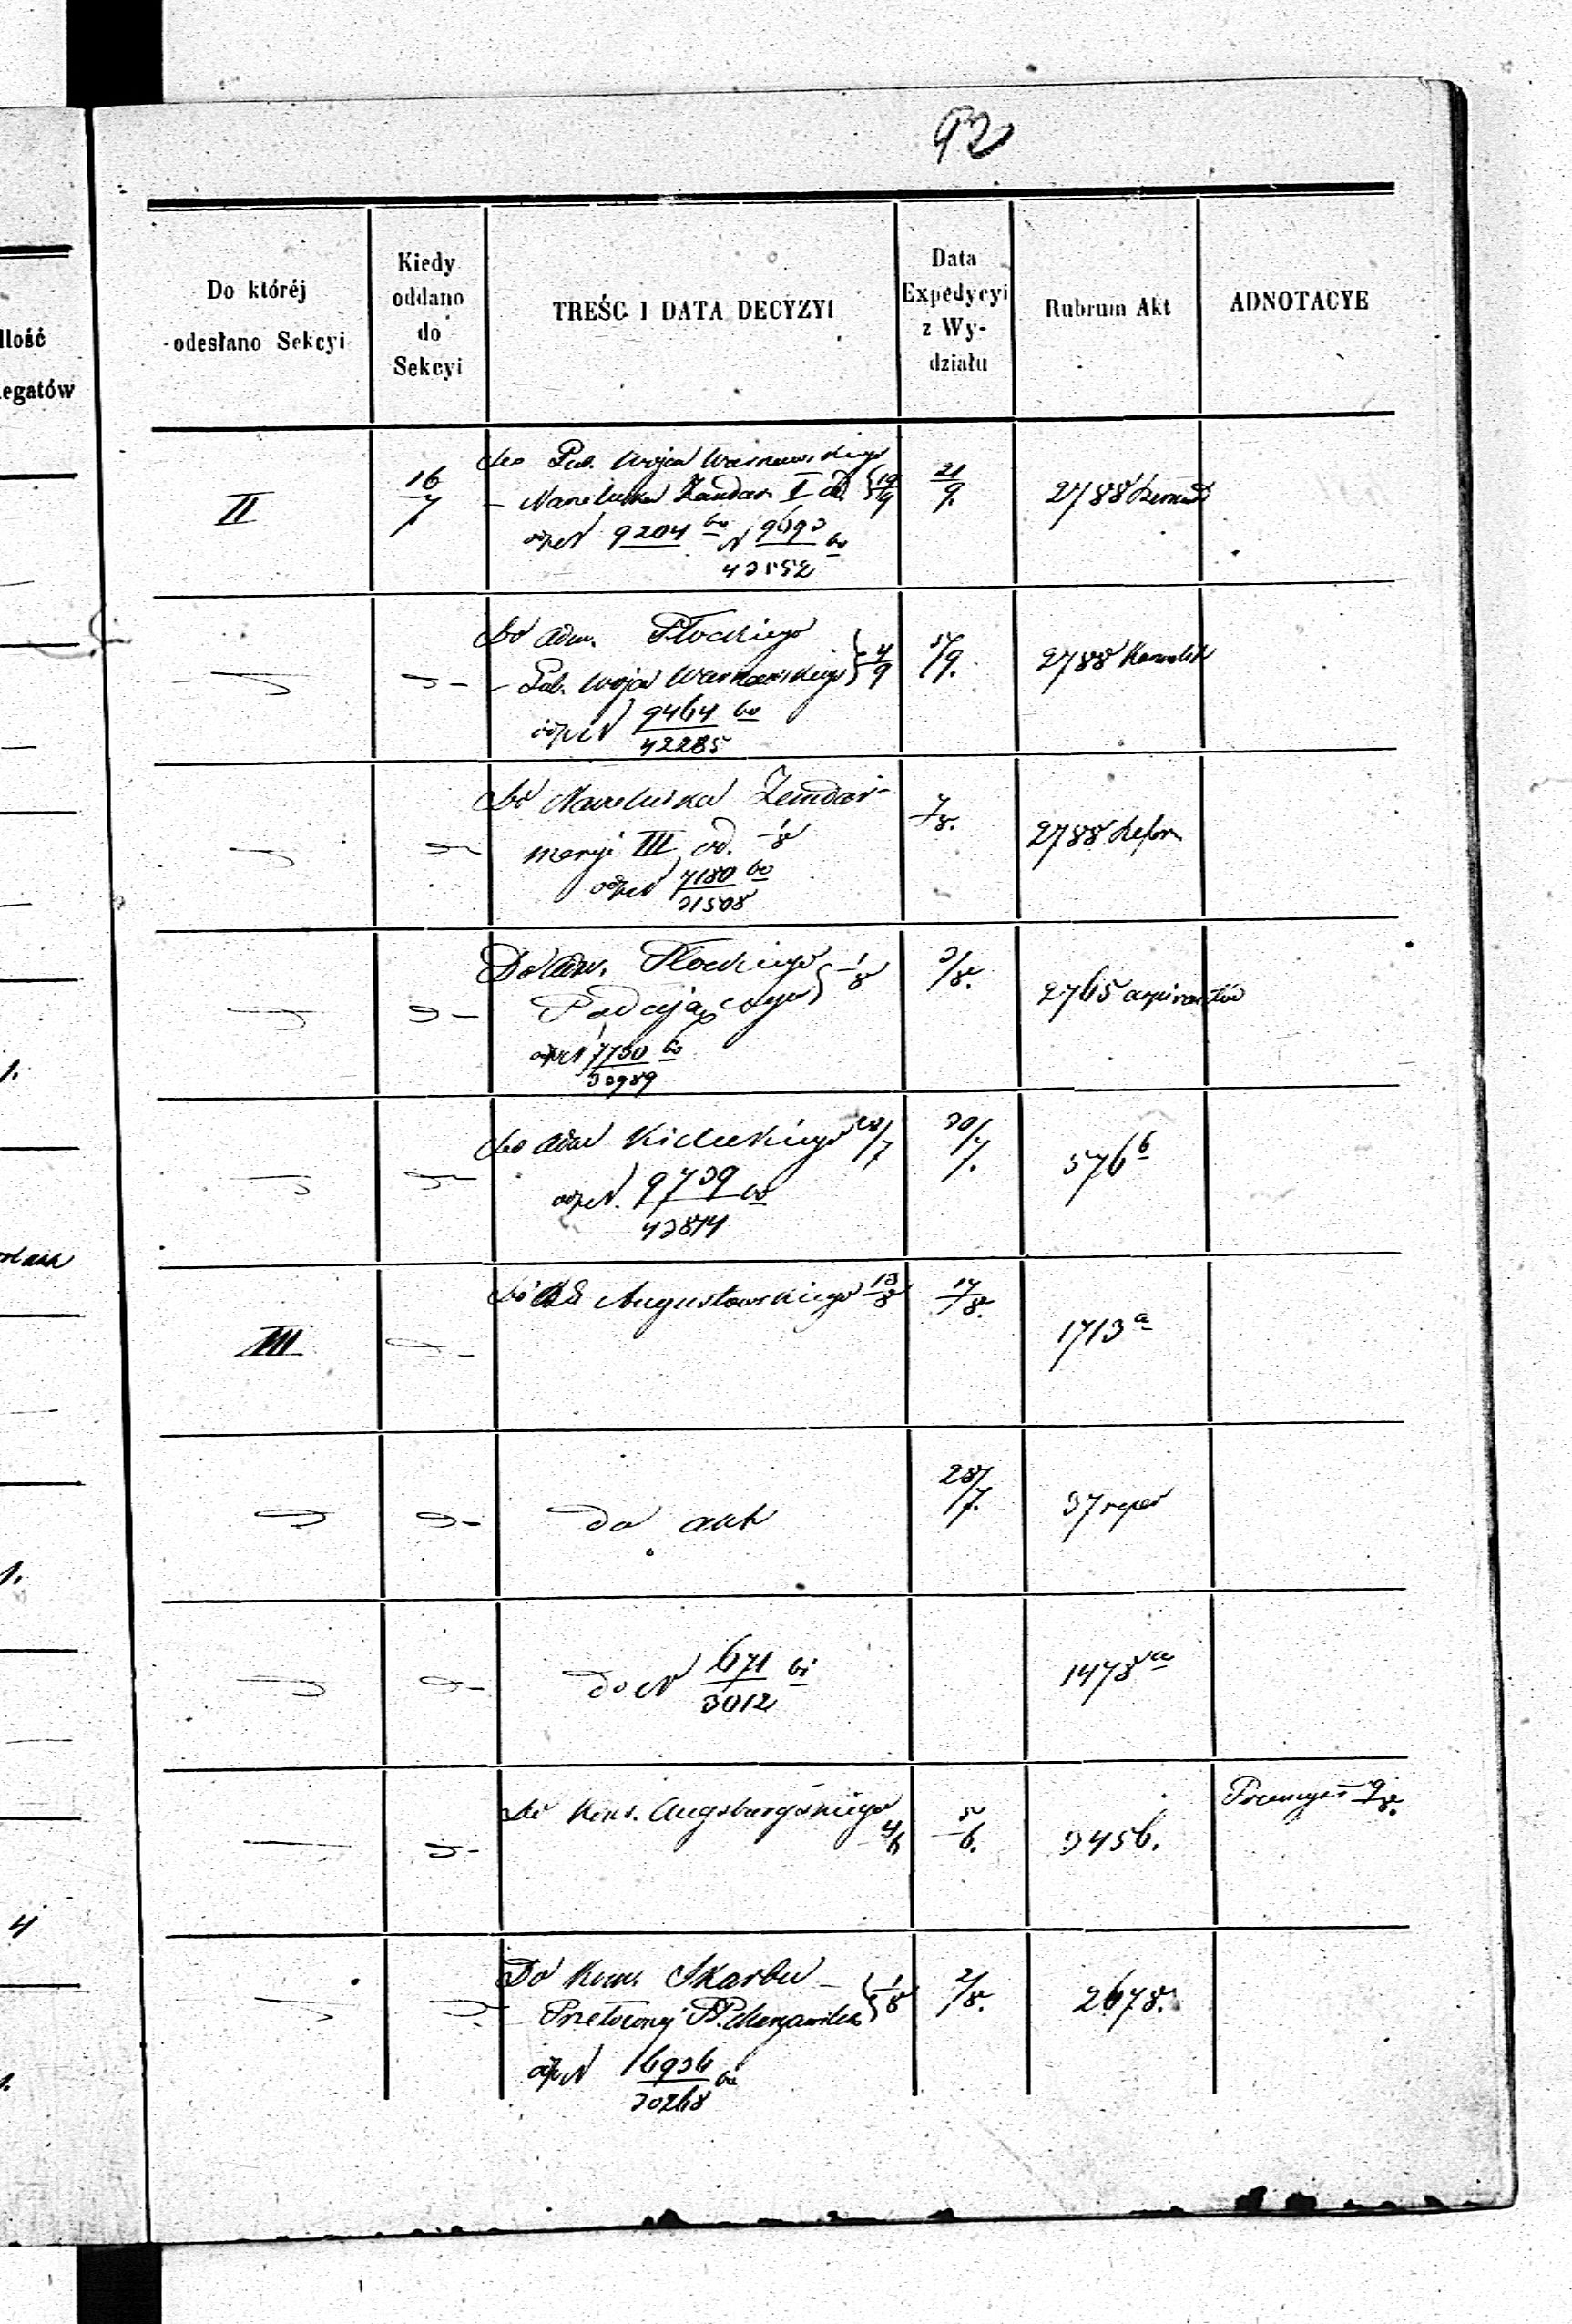 92
Ilość
legatów
Do któréj
odesłano Sekcyi
Kiedy
oddano
do
Sekcyi
TREŚĆ I DATA DECYZYI
Data
Expedycyi
z Wy-
działu
Rubrum Akt
ADNOTACYE
II
16/7
do Gub. Woja Warszawskiego
- Naczelnika Żandar. I od. } 19/9
odp N 9204/42152 bo N 9693 bo
21/9.
2788
do Adm. Płockiego
- Gub. Woja Warszawskiego } 4/9
odp N 9464/42285 bo
5/9.
2788
do Naczelnika Żendar-
meryi III od. 1/8
odp N 7180/31508 bo
7/8.
2788
Do Adm. Płockiego } 1/8
Podcją
odp N 7730/30989 bo
3/8.
2765 aspirantów
do Adm Kieleckiego 28/7
odp N. 9739/43814 bo
30/7.
576 b
III
do Augustowskiego 13/8
17/8.
1713 a
do akt
28/7.
37
do N 671/3012 bi
1478 a
do Kons. Augsburgskiego
4/6
5/6.
3456.
Przemysł 9/8.
Do Kom. Skarbu -
Przełożonej } 1/8
odp N 6936/30268 bo
2/8.
2678.